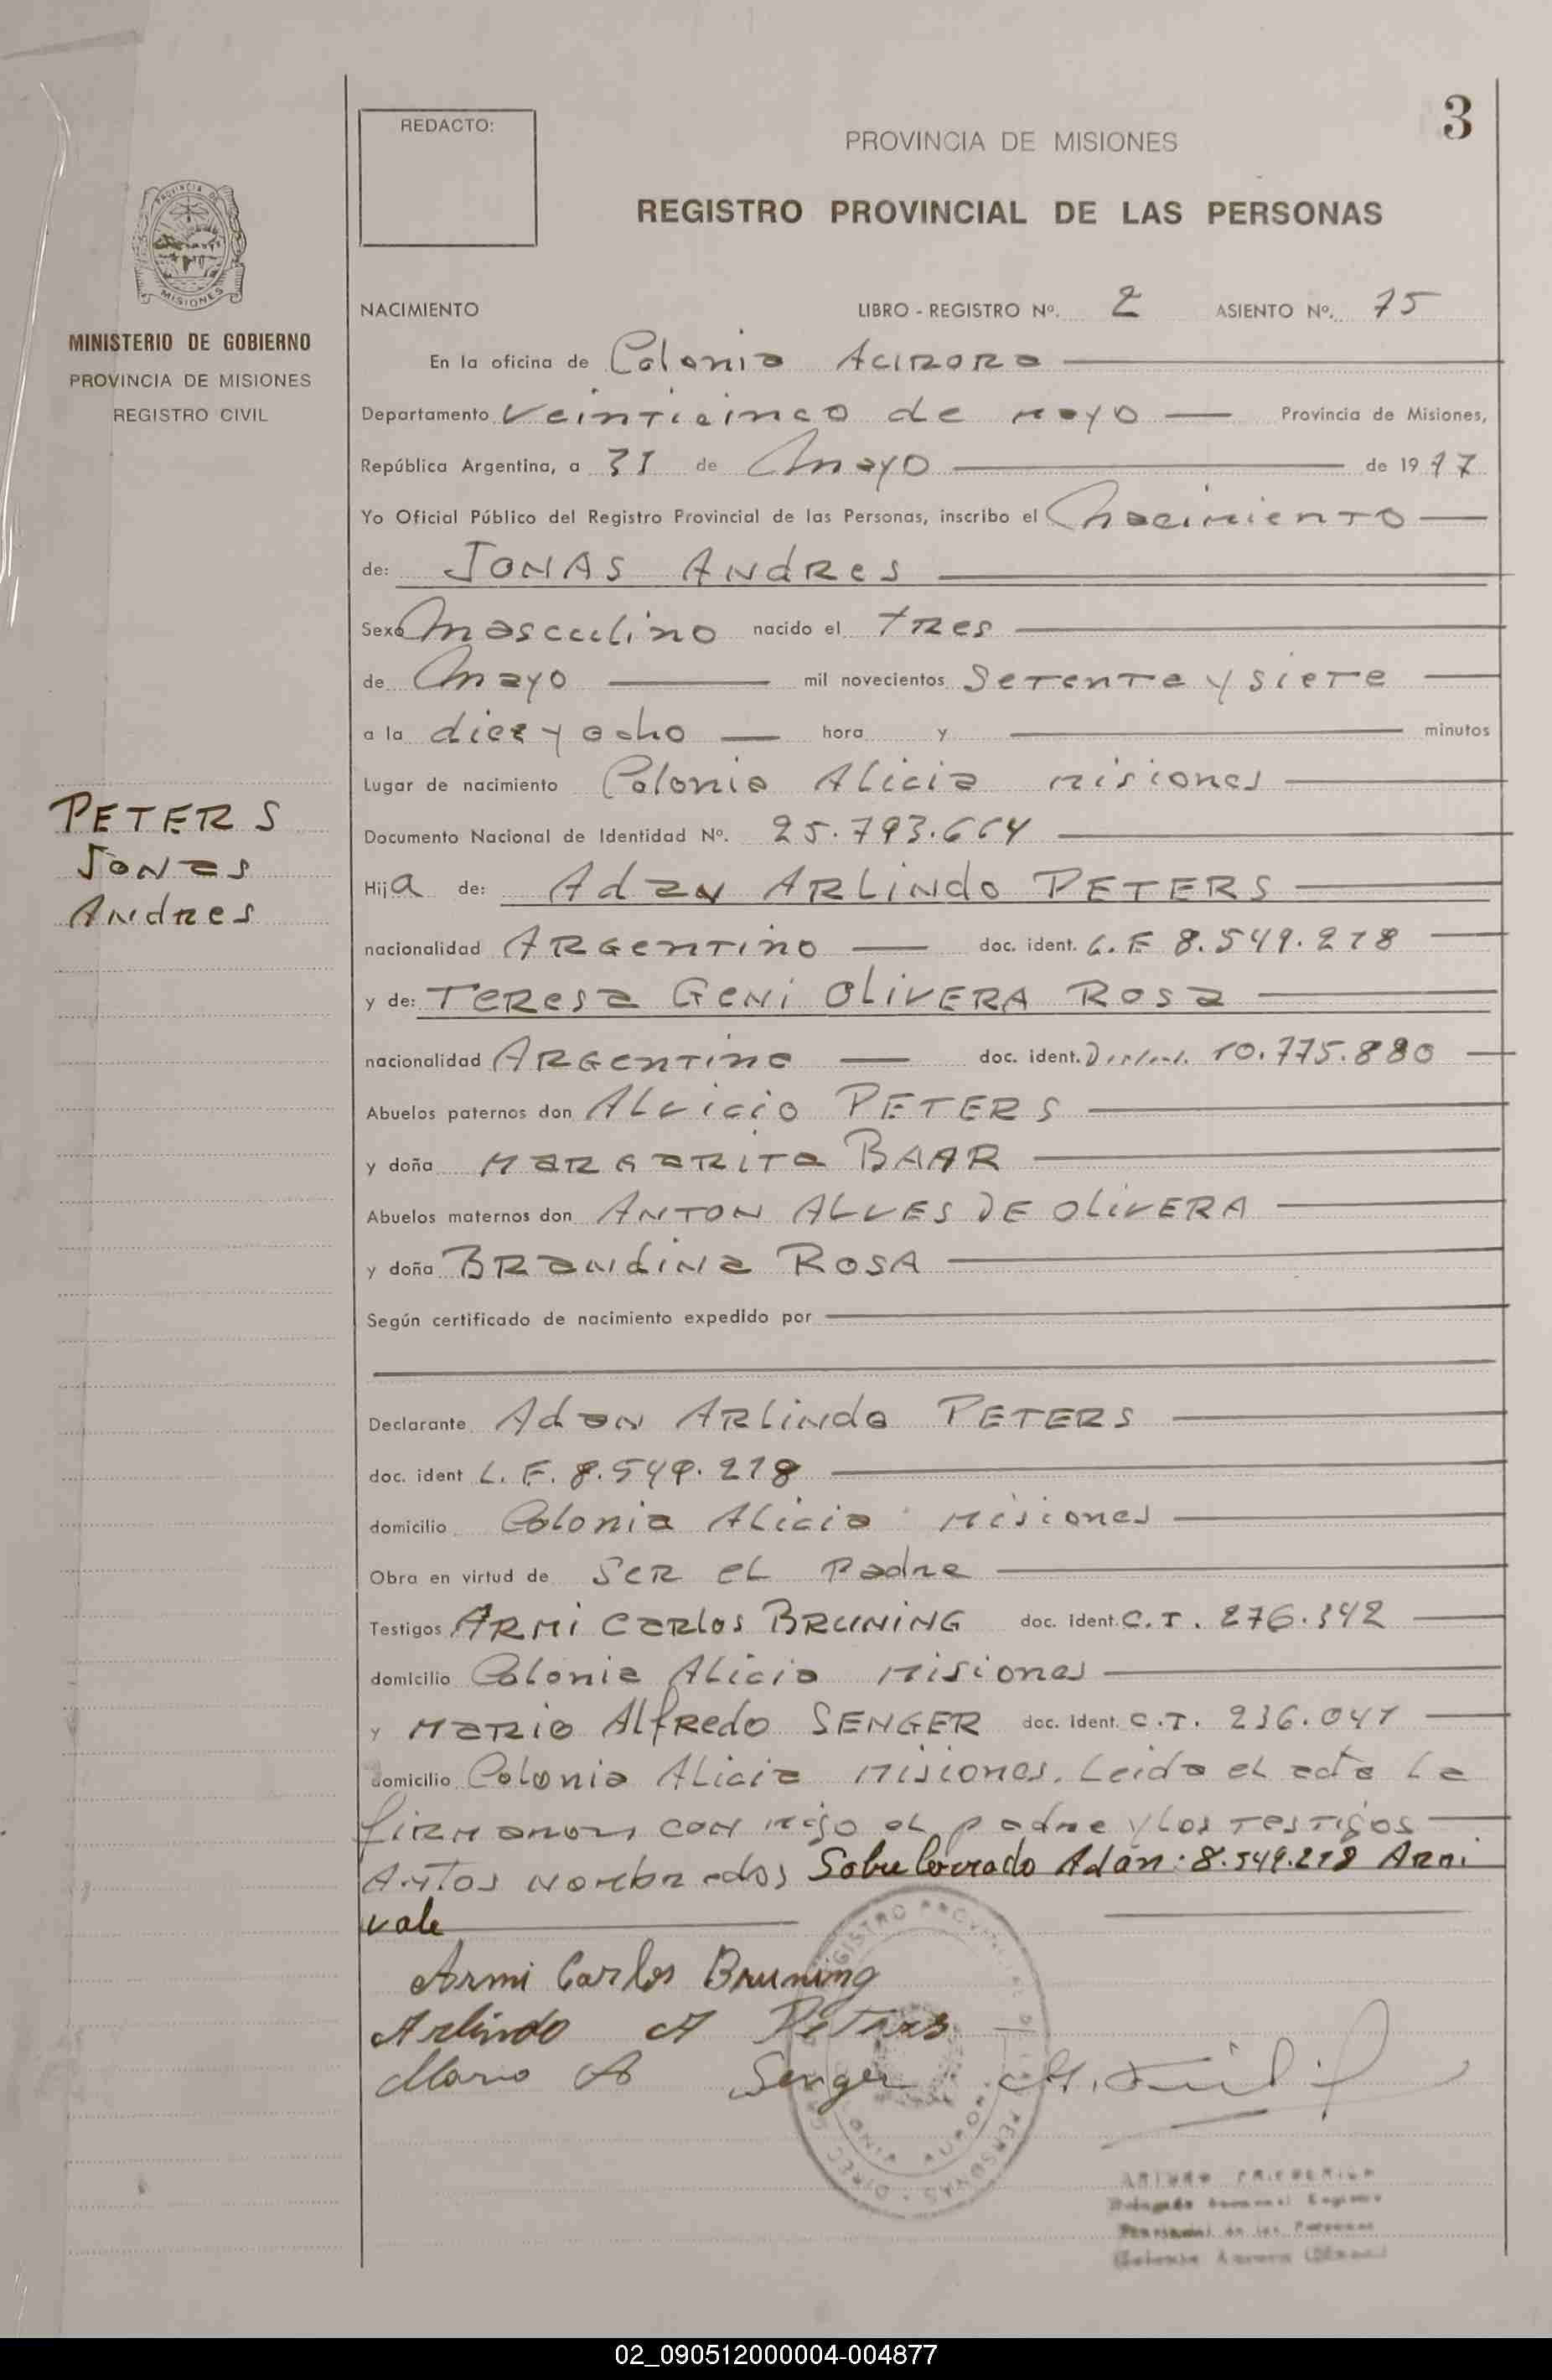 3
REDACTO:
PROVINCIA DE MISIONES
REGISTRO PROVINCIAL DE LAS PERSONAS
PROVINCIA DE
MISIONES
MINISTERIO DE GOBIERNO
PROVINCIA DE MISIONES
REGISTRO CIVIL
NACIMIENTO LIBRO - REGISTRO Nº. 2 ASIENTO Nº. 75
En la oficina de Colonia Aurora
Departamento Veinticinco de Mayo Provincia de Misiones,
República Argentina, a 31 de Mayo de 1977
Yo Oficial Público del Registro Provincial de las Personas, inscribo el Nacimiento
de: JONAS ANdRes
Sexo Masculino nacido el tres
de Mayo mil novecientos Setenta y siete
a la diez y ocho hora y minutos
Lugar de nacimiento Colonia Alicia Misiones
PETERS
Jonas
Andres
Documento Nacional de Identidad Nº. 25.793.664
Hija de: Adan ARLINdo PETERS
nacionalidad ARGentino doc. ident. L.E 8.549.218
y de: Teresa Geni OLIVERA Rosa
nacionalidad ARGentina doc. ident. 10.775.880
Abuelos paternos don Alvicio PETERS
y doña MARGARITA BAAR
Abuelos maternos don ANTON ALVES DE OLIVERA
y doña BRandina ROSA
Según certificado de nacimiento expedido por
Declarante Adan ARLindo PETERS
doc. ident L.E. 8.549.218
domicilio Colonia Alicia Misiones
Obra en virtud de SER el Padre
Testigos ARMi Carlos BRUNiNG doc. ident. C.I. 276.342
domicilio Colonia Alicia Misiones
y Mario Alfredo SENGER doc. ident. C.I. 236.041
domicilio Colonia Alicia Misiones. Leida el acta la
firman con migo el padre y los testigos
Antos nombrados Sobre borrado Adán: 8.549.218 Armi
vale
Armi Carlos Bruning
Arlindo A Peters
Mario A Senger
REGISTRO PROVINCIAL DE LAS PERSONAS
02_090512000004-004877